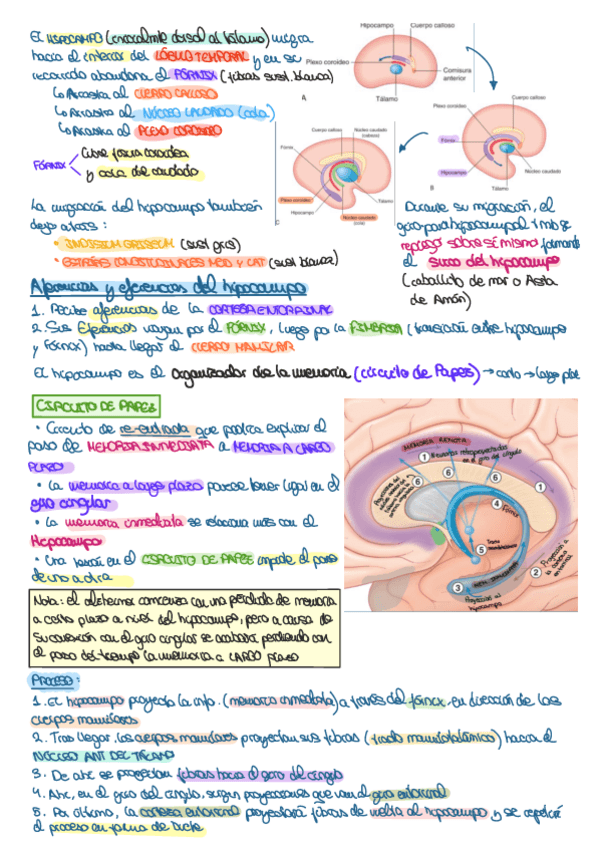 El HIPOCAMPO (inicialmente dorsal al tálamo) migra
hacia el interior del LÓBULO TEMPORAL y en su
recorrido abandona el FÓRNIX (fibras sust. blanca)
↳ Arrastra al CUERPO CALLOSO
↳ Arrastra al NÚCLEO CAUDADO (cola)
↳ Arrastra al PLEXO COROIDEO
FÓRNIX
Cubre fisura coroidea
y cola del caudado
Hipocampo
Cuerpo calloso
Plexo coroideo
Comisura
anterior
Tálamo
A
Cuerpo calloso
Plexo coroideo
Fórnix
Hipocampo
Núcleo caudado
(cola)
Tálamo
B
Cuerpo calloso
Núcleo caudado
(cabeza)
Fórnix
Plexo coroideo
Hipocampo
Tálamo
Núcleo caudado
(cola)
C
La migración del hipocampo también
deja atrás:
• INDUSIUM GRISEUM (sust gris)
• ESTRÍAS LONGITUDINALES MED Y LAT (sust blanca)
Durante su migración, el
giro parahipocampal tmb se
repliega sobre sí mismo formando
el surco del hipocampo
(caballito de mar o Asta
de Amón)
Aferencias y eferencias del hipocampo
1. Recibe aferencias de la CORTEZA ENTORRINAL
2. Sus Eferencias viajan por el FÓRNIX, luego por la FIMBRIA (transición entre hipocampo
y fórnix) hasta llegar al CUERPO MAMILAR
El hipocampo es el organizador de la memoria (circuito de Papez) → corto → largo plazo
CIRCUITO DE PAPEZ
• Circuito de re-entrada que podría explicar el
paso de MEMORIA INMEDIATA a MEMORIA A LARGO
PLAZO
• La memoria a largo plazo parece tener lugar en el
giro cingular
• La memoria inmediata se relaciona más con el
Hipocampo
• Una lesión en el CIRCUITO DE PAPEZ impide el paso
de una a otra
MEMORIA REMOTA
1
Memorias retroproyectadas
en el giro del cíngulo
6
6
6
1
4
Fórnix
Tracto
mamilotalámico
5
2
Proyección a
la corteza
entorrinal
3
Proyección al
hipocampo
Nota: el alzheimer comienza con una pérdida de memoria
a corto plazo a nivel del hipocampo, pero a causa de
su conexión con el giro cingular se acabará perdiendo con
el paso del tiempo la memoria a LARGO plazo
PROCESO:
1. El hipocampo proyecta la info. (memoria inmediata) a través del fórnix en dirección de los
cuerpos mamilares
2. Tras llegar, los cuerpos mamilares proyectan sus fibras (tracto mamilotalámico) hacia el
NÚCLEO ANT DEL TÁLAMO
3. De ahí se proyectan fibras hacia el giro del cíngulo
4. Ahí, en el giro del cíngulo, surgen proyecciones que van al giro entorrinal
5. Por último, la corteza entorrinal proyectará fibras de vuelta al hipocampo y se repetirá
el proceso en forma de bucle